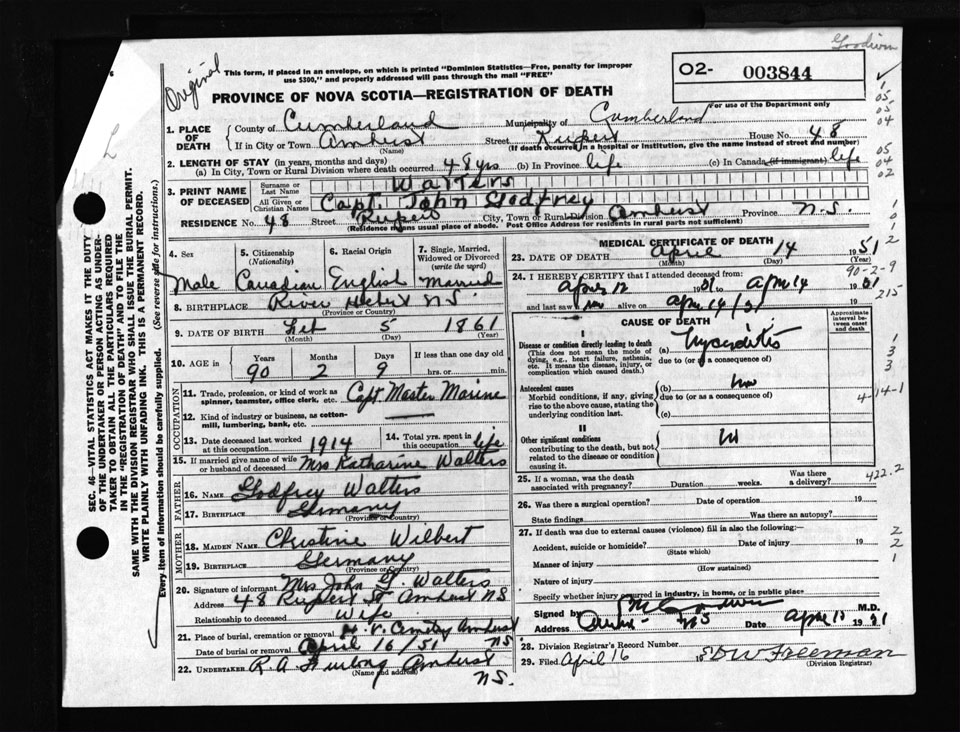 Goodwin
Original
This form, if placed in an envelope, on which is printed "Dominion Statistics—Free, penalty for improper
use $300," and properly addressed will pass through the mail "FREE"
O2- 003844
For use of the Department only
PROVINCE OF NOVA SCOTIA—REGISTRATION OF DEATH
1. PLACE OF DEATH County of Cumberland Municipality of Cumberland
If in City or Town Amherst (Name) Street Rupert House No. 48
(If death occurred in a hospital or institution, give the name instead of street and number)
2. LENGTH OF STAY (in years, months and days)
(a) In City, Town or Rural Division where death occurred 48 yrs (b) In Province life (c) In Canada (if immigrant) life
3. PRINT NAME OF DECEASED Surname or Last Name Walters
All Given or Christian Names Capt. John Godfrey
RESIDENCE No. 48 Street Rupert City, Town or Rural Division Amherst Province N.S.
(Residence means usual place of abode. Post Office Address for residents in rural parts not sufficient)
4. Sex Male
5. Citizenship (Nationality) Canadian
6. Racial Origin English
7. Single, Married, Widowed or Divorced (write the word) Married
8. BIRTHPLACE River Hebert N.S.
(Province or Country)
9. DATE OF BIRTH Feb 5 1861
(Month) (Day) (Year)
10. AGE in Years 90 Months 2 Days 9 If less than one day old hrs. or min.
OCCUPATION
11. Trade, profession, or kind of work as spinner, teamster, office clerk, etc. Capt Master Marine
12. Kind of industry or business, as cotton-mill, lumbering, bank, etc.
13. Date deceased last worked at this occupation 1914
14. Total yrs. spent in this occupation life
15. If married give name of wife or husband of deceased Mrs Katharine Walters
FATHER
16. NAME Godfrey Walters
17. BIRTHPLACE Germany
(Province or Country)
MOTHER
18. MAIDEN NAME Christine Wilbert
19. BIRTHPLACE Germany
(Province or Country)
20. Signature of informant Mrs John G. Walters
Address 48 Rupert St Amherst NS
Relationship to deceased Wife
21. Place of burial, cremation or removal Cemetery Amherst
Date of burial or removal April 16/51 NS
22. UNDERTAKER R.A. Furlong Amherst
(Name and address) N.S.
MEDICAL CERTIFICATE OF DEATH
23. DATE OF DEATH April 14 1951
(Month) (Day) (Year)
24. I HEREBY CERTIFY that I attended deceased from
April 12 1951 to April 14 1951
and last saw him alive on April 14/51
CAUSE OF DEATH
Approximate interval between onset and death
I
Disease or condition directly leading to death (a) Myocarditis
(This does not mean the mode of dying, e.g., heart failure, asthenia, etc. It means the disease, injury, or complication which caused death.)
due to (or as a consequence of)
Antecedent causes (b)
Morbid conditions, if any, giving rise to the above cause, stating the underlying condition last.
due to (or as a consequence of)
(c)
II
Other significant conditions
contributing to the death, but not related to the disease or condition causing it.
25. If a woman, was the death associated with pregnancy? Duration weeks. Was there a delivery?
26. Was there a surgical operation? Date of operation 19
State findings Was there an autopsy?
27. If death was due to external causes (violence) fill in also the following:—
Accident, suicide or homicide? (State which) Date of injury 19
Manner of injury (How sustained)
Nature of injury
Specify whether injury occurred in industry, in home, or in public place
Signed by Goodwin M.D.
Address NS Date April 1951
28. Division Registrar's Record Number
29. Filed April 16 19 Freeman
(Division Registrar)
SEC. 46—VITAL STATISTICS ACT MAKES IT THE DUTY
OF THE UNDERTAKER OR PERSON ACTING AS UNDER-
TAKER TO OBTAIN ALL THE PARTICULARS REQUIRED
IN THE "REGISTRATION OF DEATH" AND TO FILE THE
SAME WITH THE DIVISION REGISTRAR WHO SHALL ISSUE THE BURIAL PERMIT.
WRITE PLAINLY WITH UNFADING INK. THIS IS A PERMANENT RECORD.
Every item of information should be carefully supplied. (See reverse side for instructions.)
1
05
05
04
05
04
02
1
0
1
2
90-2-9
215
1
3
3
4-14-1
422.2
2
2
1